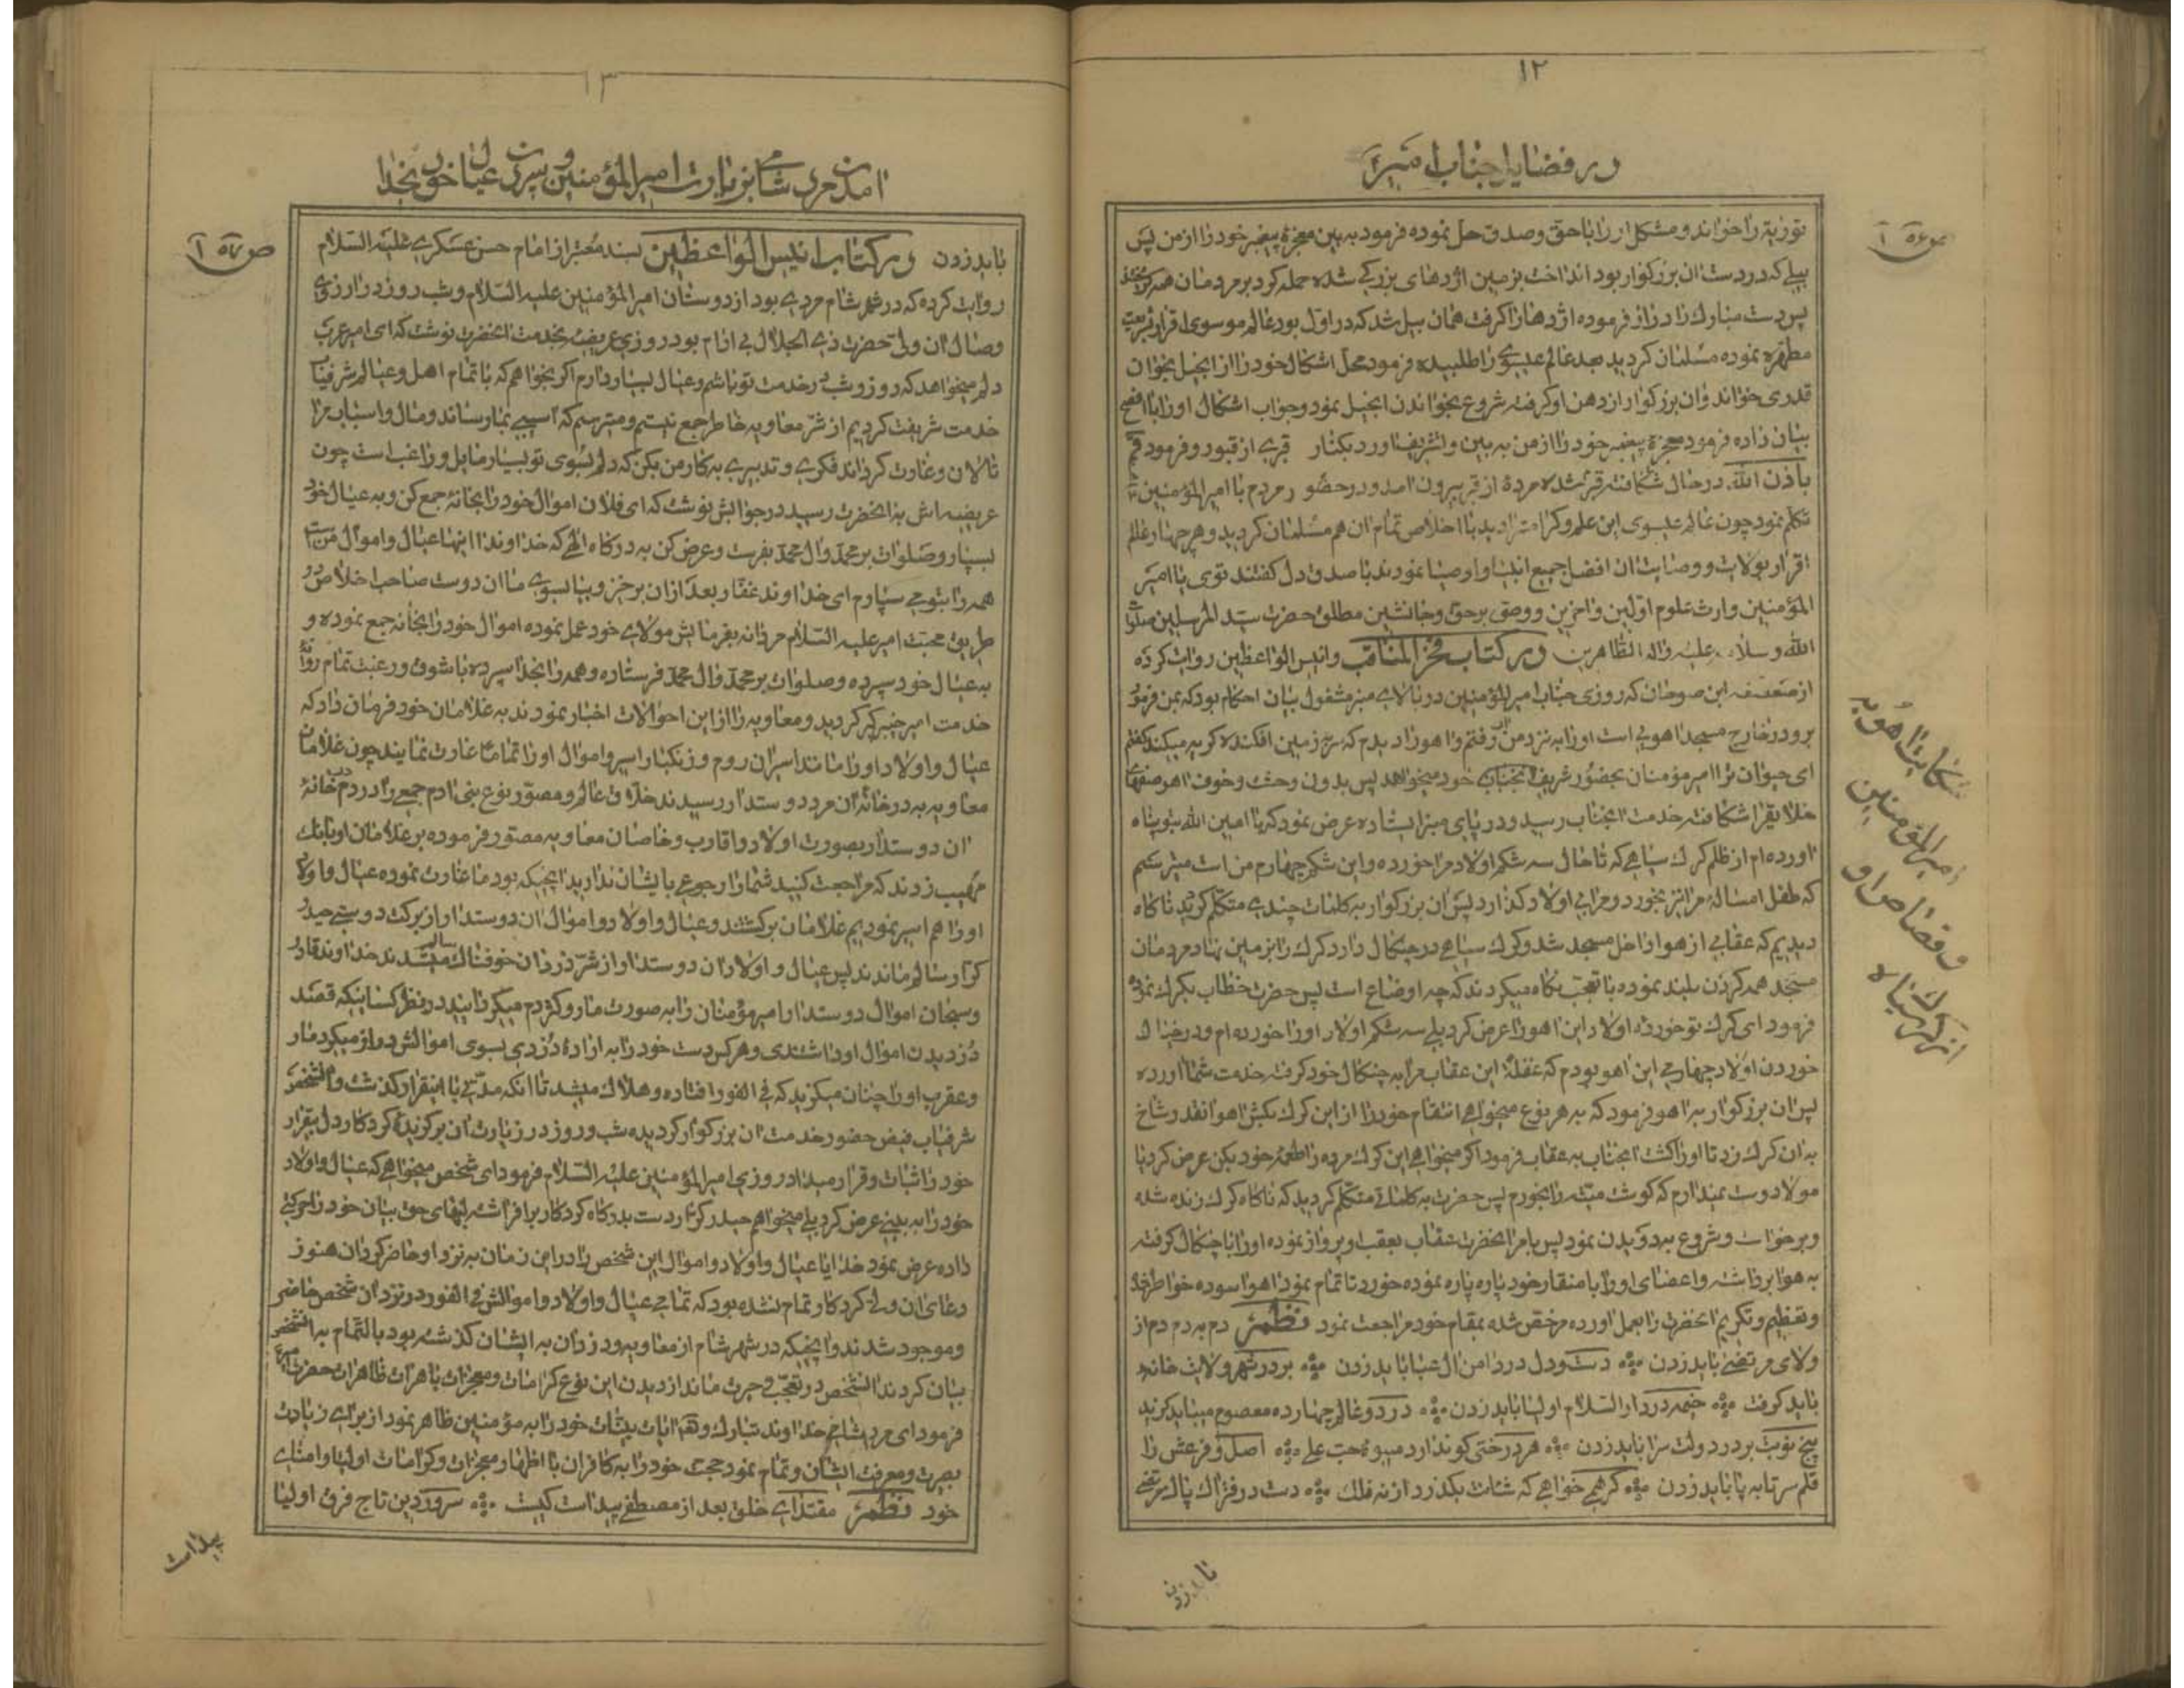 ۱۲
در فضایل جناب امیر
توریة را خواند و مشکل او را با حق و صدق حل نموده فرمود به بین معجزهٔ پیغمبر خود را از من پس
بیلی که در دست ان بزرکوار بود انداخت بزمین اژدهای بزرکی شده حمله کرد بر مردمان همه
پس دست مبارک را دراز فرموده اژدها را کرفت همان بیل شد که در اول بود عالم موسوی اقرار بشریعت
مطهره نموده مسلمان کردید بعد عالم عیسوی را طلبیده فرمود محل اشکال خود را از انجیل بخوان
قدری خواند و ان بزرکوار از دهن او کرفته شروع بخواندن انجیل نمود و جواب اشکال او را با افصح
بیان داده فرمود معجزهٔ پیغمبر خود را از من به بین و تشریف اورد بکنار قبری از قبور و فرمود قم
باذن الله در حال شکافته قبر شده مردهٔ از قبر بیرون امد و در حضور مردم با امیر المؤمنین
تکلم نمود چون عالم عیسوی این علم و کرامت را دید با اخلاص تمام ان هم مسلمان کردید و هر چهار عالم
اقرار بولایت و وصایت ان افضل جمیع انبیا و اوصیا نمودند با صدق دل کفتند توی یا امیر
المؤمنین وارث علوم اولین و اخرین و وصی بر حق و جانشین مطلق حضرت سید المرسلین صلوات
الله و سلامه علیه و اله الطاهرین در کتاب فخر المناقب و انیس الواعظین روایت کرده
از صعصعه ابن صوحان که روزی جناب امیر المؤمنین در بالای منبر مشغول بیان احکام بود که بمن فرمود
برو در خارج مسجد اهویی است او را به نزد من ار رفتم و اهو را دیدم که سر بزمین افکنده کریه میکند کفتم
ای حیوان ترا امیر مؤمنان بحضور شریف انجناب خود میخواهد پس بدون وحشت و خوف اهو صفهای
خلایق را شکافته خدمت انجناب رسید و در پای منبر ایستاده عرض نمود که یا امین الله بتو پناه
اورده ام از ظلم کرک سیاهی که تا حال سه شکم اولاد مرا خورده و این شکم چهارم من است میترسم
که طفل امسالهٔ مرا نیز بخورد و مرا بی اولاد کذارد پس ان بزرکوار به کلمات چندی متکلم کردید ناکاه
دیدیم که عقابی از هوا داخل مسجد شد و کرک سیاهی در چنکال دارد کرک را بر زمین نهاد مردمان
مسجد همه کردن بلند نموده با تعجب نکاه میکردند که چه اوضاع است پس حضرت خطاب بکرک نموده
فرمود ای کرک تو خوردهٔ اولاد این اهو را عرض کرد بلی سه شکم اولاد او را خورده ام و در خیال
خوردن اولاد چهارمی این اهو بودم که غفلة این عقاب مرا به چنکال خود کرفته خدمت شما اورده
پس ان بزرکوار به اهو فرمود که به هر نوع میخواهی انتقام خود را از این کرک بکش اهو انقدر شاخ
به ان کرک زد تا او را کشت انجناب به عقاب فرمود اکر میخواهی این کرک مرده را طعمهٔ خود بکن عرض کرد یا
مولا دوست نمیدارم که کوشت میته را بخورم پس حضرت به کلماتی متکلم کردید که ناکاه کرک زنده شده
و برخواست و شروع به دویدن نمود پس بامر انحضرت عقاب بعقب او پرواز نموده او را با چنکال کرفته
به هوا برداشته و اعضای او را با منقار خود پاره پاره نموده خورد تا تمام نمود اهو اسوده خواطر شد
و تعظیم و تکریم انحضرت را بعمل اورده مرخص شده بمقام خود مراجعت نمود نظم دم به دم دم از
ولای مرتضی باید زدن دست و دل در دامن ال عبا باید زدن بر در شهر ولایت خانهٔ
باید کرفت خیمه در دار السلام اولیا باید زدن در دو عالم چهارده معصوم میباید کزید
پنج نوبت بر در دولت سرا باید زدن هر درختی کو ندارد میوهٔ حب علی اصل و فرعش را
قلم سر تا به پا باید زدن کر همی خواهی که شئات بکذرد از نه فلک دست در فتراک پاک مرتضی
باید زدن
شکایت اهو به
امیر المؤمنین
و قصاص او
از کرک سیاه
۱۳
امدن مرد شامی بزیارت امیر المؤمنین و سپردن عیال خود بخدا
باید زدن در کتاب انیس الواعظین بسند معتبر از امام حسن عسکری علیه السلام
روایت کرده که در شهر شام مردی بود از دوستان امیر المؤمنین علیه السلام و شب و روز در ارزوی
وصال ان ولی حضرت ذی الجلال بی ارام بود روزی عریضهٔ بخدمت انحضرت نوشت که ای امیر عرب
دلم میخواهد که روز و شب در خدمت تو باشم و عیال بسیار دارم اکر بخواهم که با تمام اهل و عیالم شرفیاب
خدمت شریفت کردیم از شر معاویه خاطر جمع نیستم و میترسم که اسیبی بما رساند و مال و اسباب مرا
تالان و غارت کرداند فکری و تدبیری به کار من بکن که دلم بسوی تو بسیار مایل و راغب است چون
عریضه اش به انحضرت رسید در جوابش نوشت که ای فلان اموال خود را بخانه جمع کن و به عیال خود
بسپار و صلوات بر محمد و ال محمد بفرست و عرض کن به درکاه الهی که خداوندا اینها عیال و اموال من است
همه را بتو می سپارم ای خداوند غفار بعد از ان برخیز و بیا بسوی ما ان دوست صاحب اخلاص در
طریق محبت امیر علیه السلام مردانه بفرمایش مولای خود عمل نموده اموال خود را بخانه جمع نموده و
به عیال خود سپرده و صلوات بر محمد و ال محمد فرستاده و همه را بخدا سپرده با شوق و رغبت تمام روانهٔ
خدمت امیر خیبر کیر کردید و معاویه را از این احوالات اخبار نمودند به غلامان خود فرمان داد که
عیال و اولاد او را مانند اسیران روم و زنکبار اسیر و اموال او را تماما غارت نمایند چون غلامان
معاویه به در خانهٔ ان مرد دوستدار رسیدند خلاق عالم و مصور نوع بنی ادم جمعی را در درب خانهٔ
ان دوستدار بصورت اولاد و اقارب و خاصان معاویه مصور فرموده بر غلامان او بانک
مهیب زدند که مراجعت کنید شما را رجوعی با ایشان ندارید انچیکه بود ما غارت نموده عیال و اولاد
او را هم اسیر نمودیم غلامان برکشتند و عیال و اولاد و اموال ان دوستدار از برکت دوستی حیدر
کرار سالم ماندند پس عیال و اولاد ان دوستدار از شر دزدان خوفناک میشدند خداوند قادر
و سبحان اموال دوستدار امیر مؤمنان را به صورت مار و کژدم میکردانید در نظر کسانیکه قصد
دزدیدن اموال او داشتندی و هر کس دست خود را به ارادهٔ دزدی بسوی اموالش دراز میکرد مار
و عقرب او را چنان میکزید که فی الفور افتاده و هلاک میشد تا انکه مدتی با اینقرار کذشت و انشخص
شرفیاب فیض حضور خدمت ان بزرکوار کردیده شب و روز در زیارت ان برکزیدهٔ کردکار دل بیقرار
خود را ثبات و قرار میداد روزی امیر المؤمنین علیه السلام فرمود ای شخص میخواهی که عیال و اولاد
خود را به بینی عرض کرد بلی میخواهم حیدر کرار دست بدرکاه کردکار برافراشته لبهای حق بیان خود را حرکتی
داده عرض نمود خدایا عیال و اولاد و اموال این شخص را در این زمان به نزد او حاضر کردان هنوز
دعای ان ولی کردکار تمام نشده بود که تمامی عیال و اولاد و اموالش فی الفور در نزد ان شخص حاضر
و موجود شدند و انچیکه در شهر شام از معاویه و دزدان به ایشان کذشته بود بالتمام به انشخص
بیان کردند انشخص در تعجب و حیرت ماند از دیدن این نوع کرامات و معجزات باهرات ظاهرات حضرت امیر
فرمود ای مرد شامی خداوند تبارک و تعالی ایات بینات خود را به مؤمنین ظاهر نمود از برای زیادت
بصیرت و معرفت ایشان و تمام نمود حجت خود را به کافران با اظهار معجزات و کرامات اولیا و امنای
خود نظم مقتدای خلق بعد از مصطفی پیداست کیست سرور دین تاج فرق اولیا
پیداست